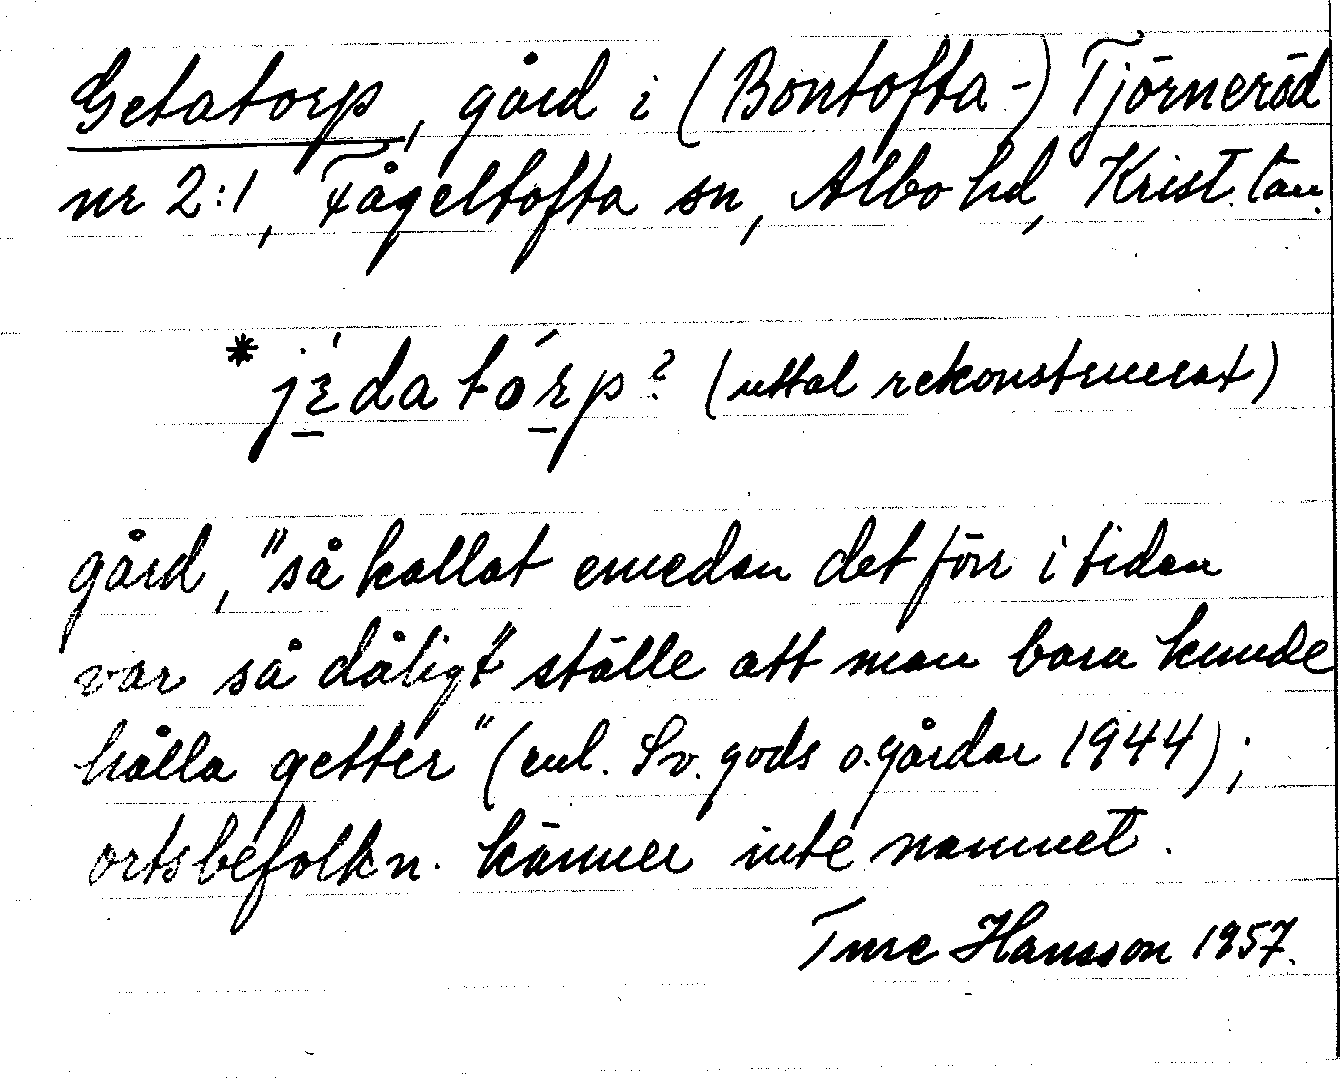 Getatorp, gård i (Bontofta-) Tjörneröd
nr 2:1, Fågeltofta sn, Albo hd, Krist. län.
* jɛ́datórp? (uttal rekonstruerat)
gård, "så kallat emedan det förr i tiden
var så dåligt ställe att man bara kunde
hålla getter" (enl. Sv. gods o. gårdar 1944);
ortsbefolkn. känner inte namnet.
Ture Hansson 1957.